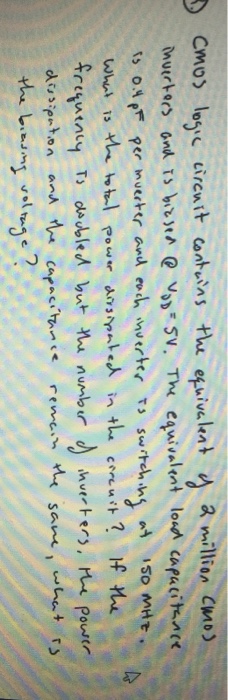 CMOS logic circuit contains the equivalent of 2 million CMOS
inverters and is biased @ VDD = 5V. The equivalent load capacitance
is 0.4pF per inverter and each inverter is switching at 150 MHz.
What is the total power dissipated in the circuit? If the
frequency is doubled but the number of inverters, the power
dissipation and the capacitance remain the same, what is
the biasing voltage?